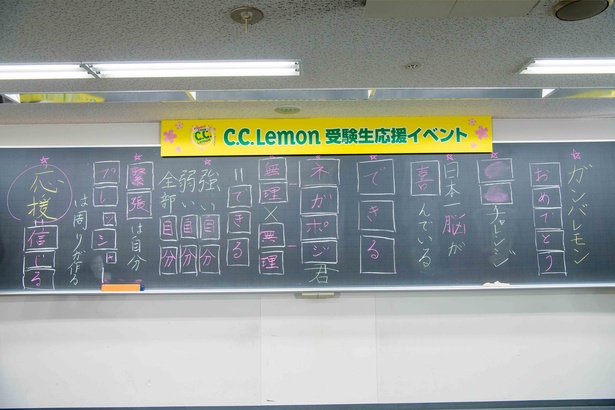 C.C.Lemon 受験生応援イベント
ガンバレモン
おめでとう
チャレンジ
日本一脳が
喜んでいる
できる
ネガポジ君
無理×無理
=できる
強い自分
弱い自分
全部自分
緊張は自分
プレッシャー
は周りが作る
応援=信じる